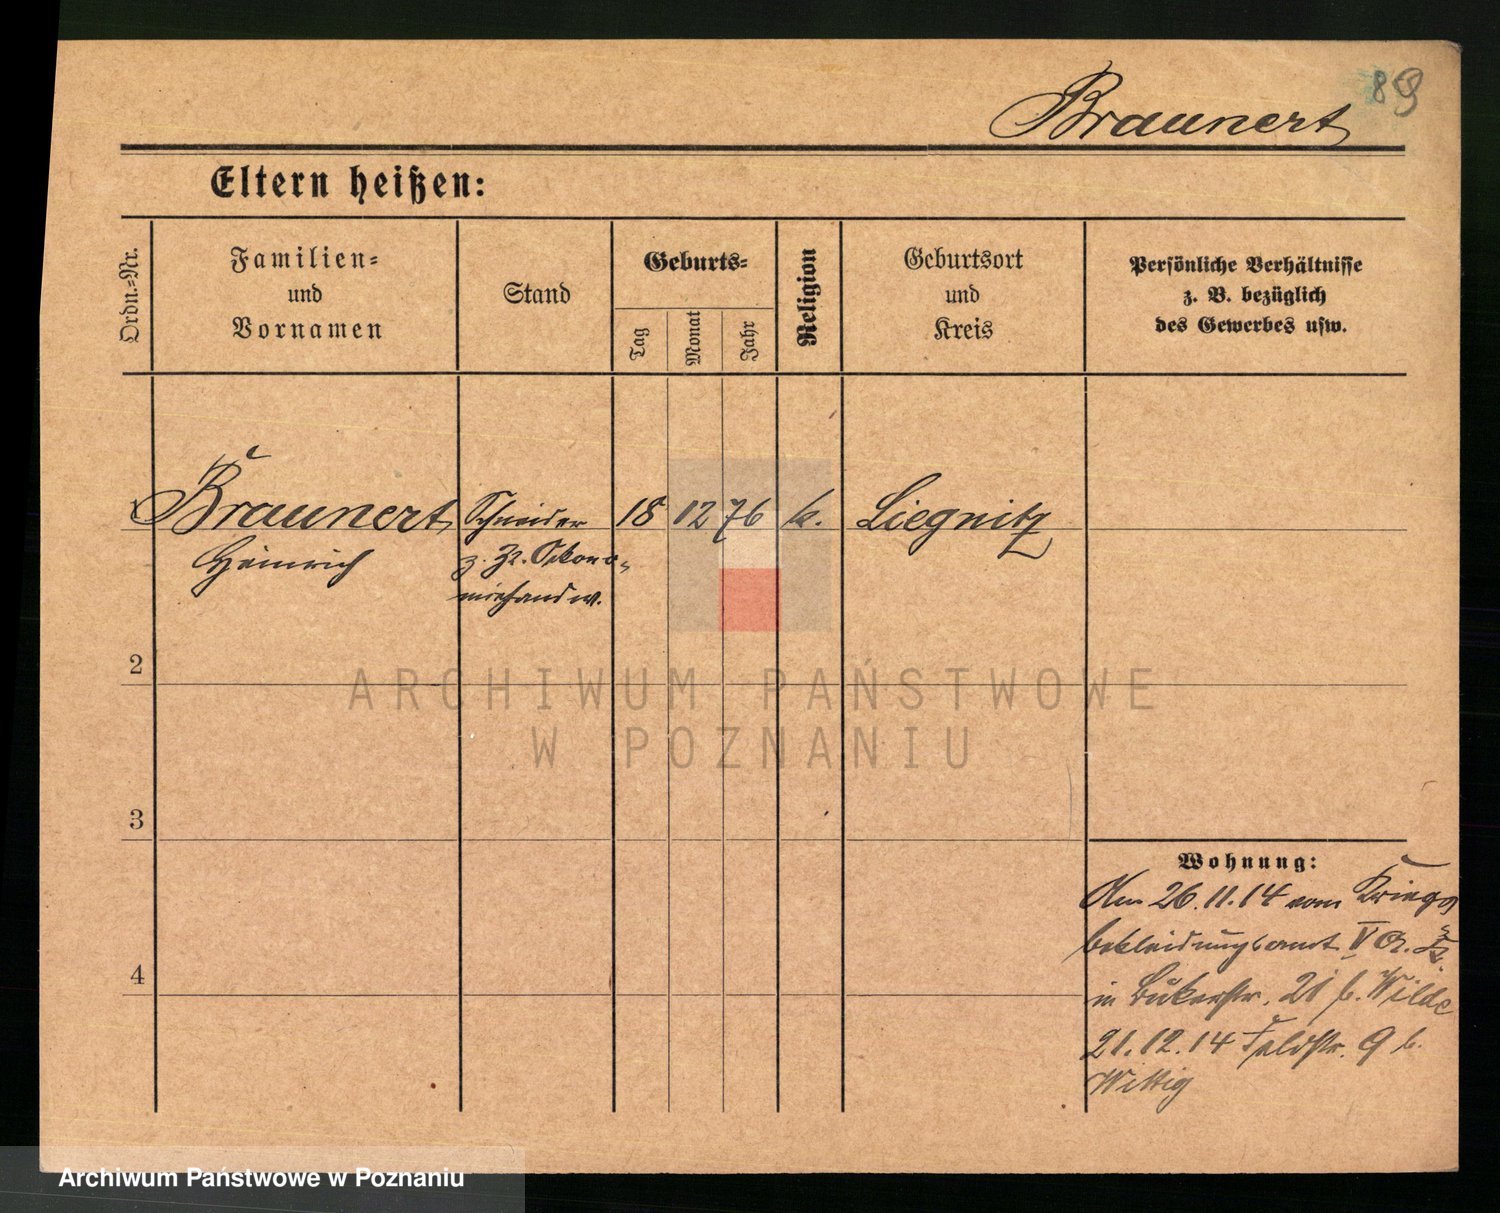 89
Braunert
Eltern heißen:
Ordn.-Nr.
Familien-
und
Vornamen
Stand
Geburts-
Tag
Monat
Jahr
Religion
Geburtsort
und
Kreis
Persönliche Verhältnisse
z. B. bezüglich
des Gewerbes usw.
1
Braunert
Heinrich
Schneider
z. Zt. Ökono-
miehandw.
18
12
76
k.
Liegnitz
2
3
4
Wohnung:
Am 26.11.14 vom Kriegs
bekleidungsamt V A.
in Bukerstr. 21 b. Wilde
21.12.14 Feldstr. 9 b.
Wittig
ARCHIWUM PAŃSTWOWE
W POZNANIU
Archiwum Państwowe w Poznaniu